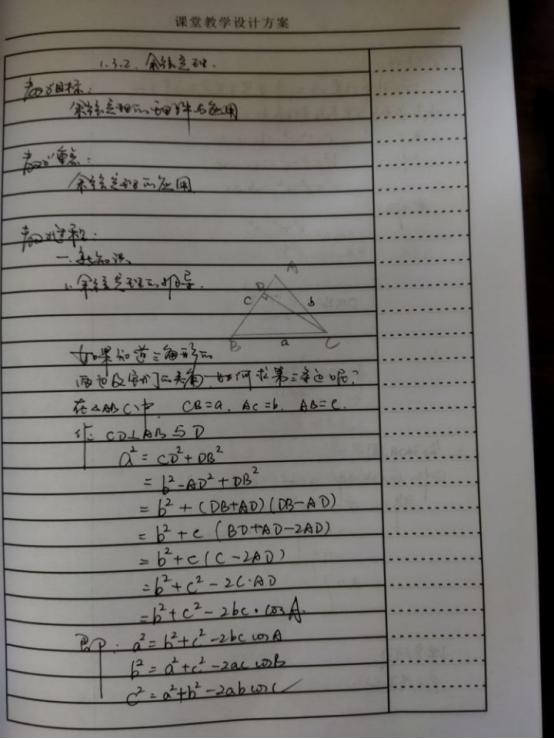 课堂教学设计方案
1.3.2. 余弦定理.
教学目标:
余弦定理的理解与应用
教学重点:
余弦定理的应用
教学过程:
一. 新知识
1. 余弦定理的推导.
A
D
c
b
B
a
C
如果知道三角形的
两边及它们的夹角一如何求第三边呢?
在△ABC中, CB=a, AC=b, AB=c.
作: CD⊥AB与D
a²=CD²+DB²
=b²-AD²+DB²
=b²+(DB+AD)(DB-AD)
=b²+c(BD+AD-2AD)
=b²+c(C-2AD)
=b²+c²-2C·AD
=b²+c²-2bc·cosA.
即: a²=b²+c²-2bc cosA
b²=a²+c²-2ac cosB
c²=a²+b²-2ab cosC